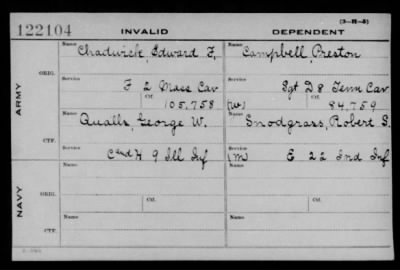 (3-H-5)
122104 INVALID DEPENDENT
ARMY
ORIG.
Name Chadwick, Edward F. Name Campbell, Preston
Service F 2 Mass Cav Service Sgt D 8 Tenn Cav
Ctf. 105,758 (W) Ctf. 84,759
CTF.
Name Qualls, George W. Name Snodgrass, Robert S.
Service C and H 9 Ill Inf Service (M) E 22 Ind Inf
NAVY
ORIG.
Name Name
Ctf. Ctf.
CTF.
Name Name